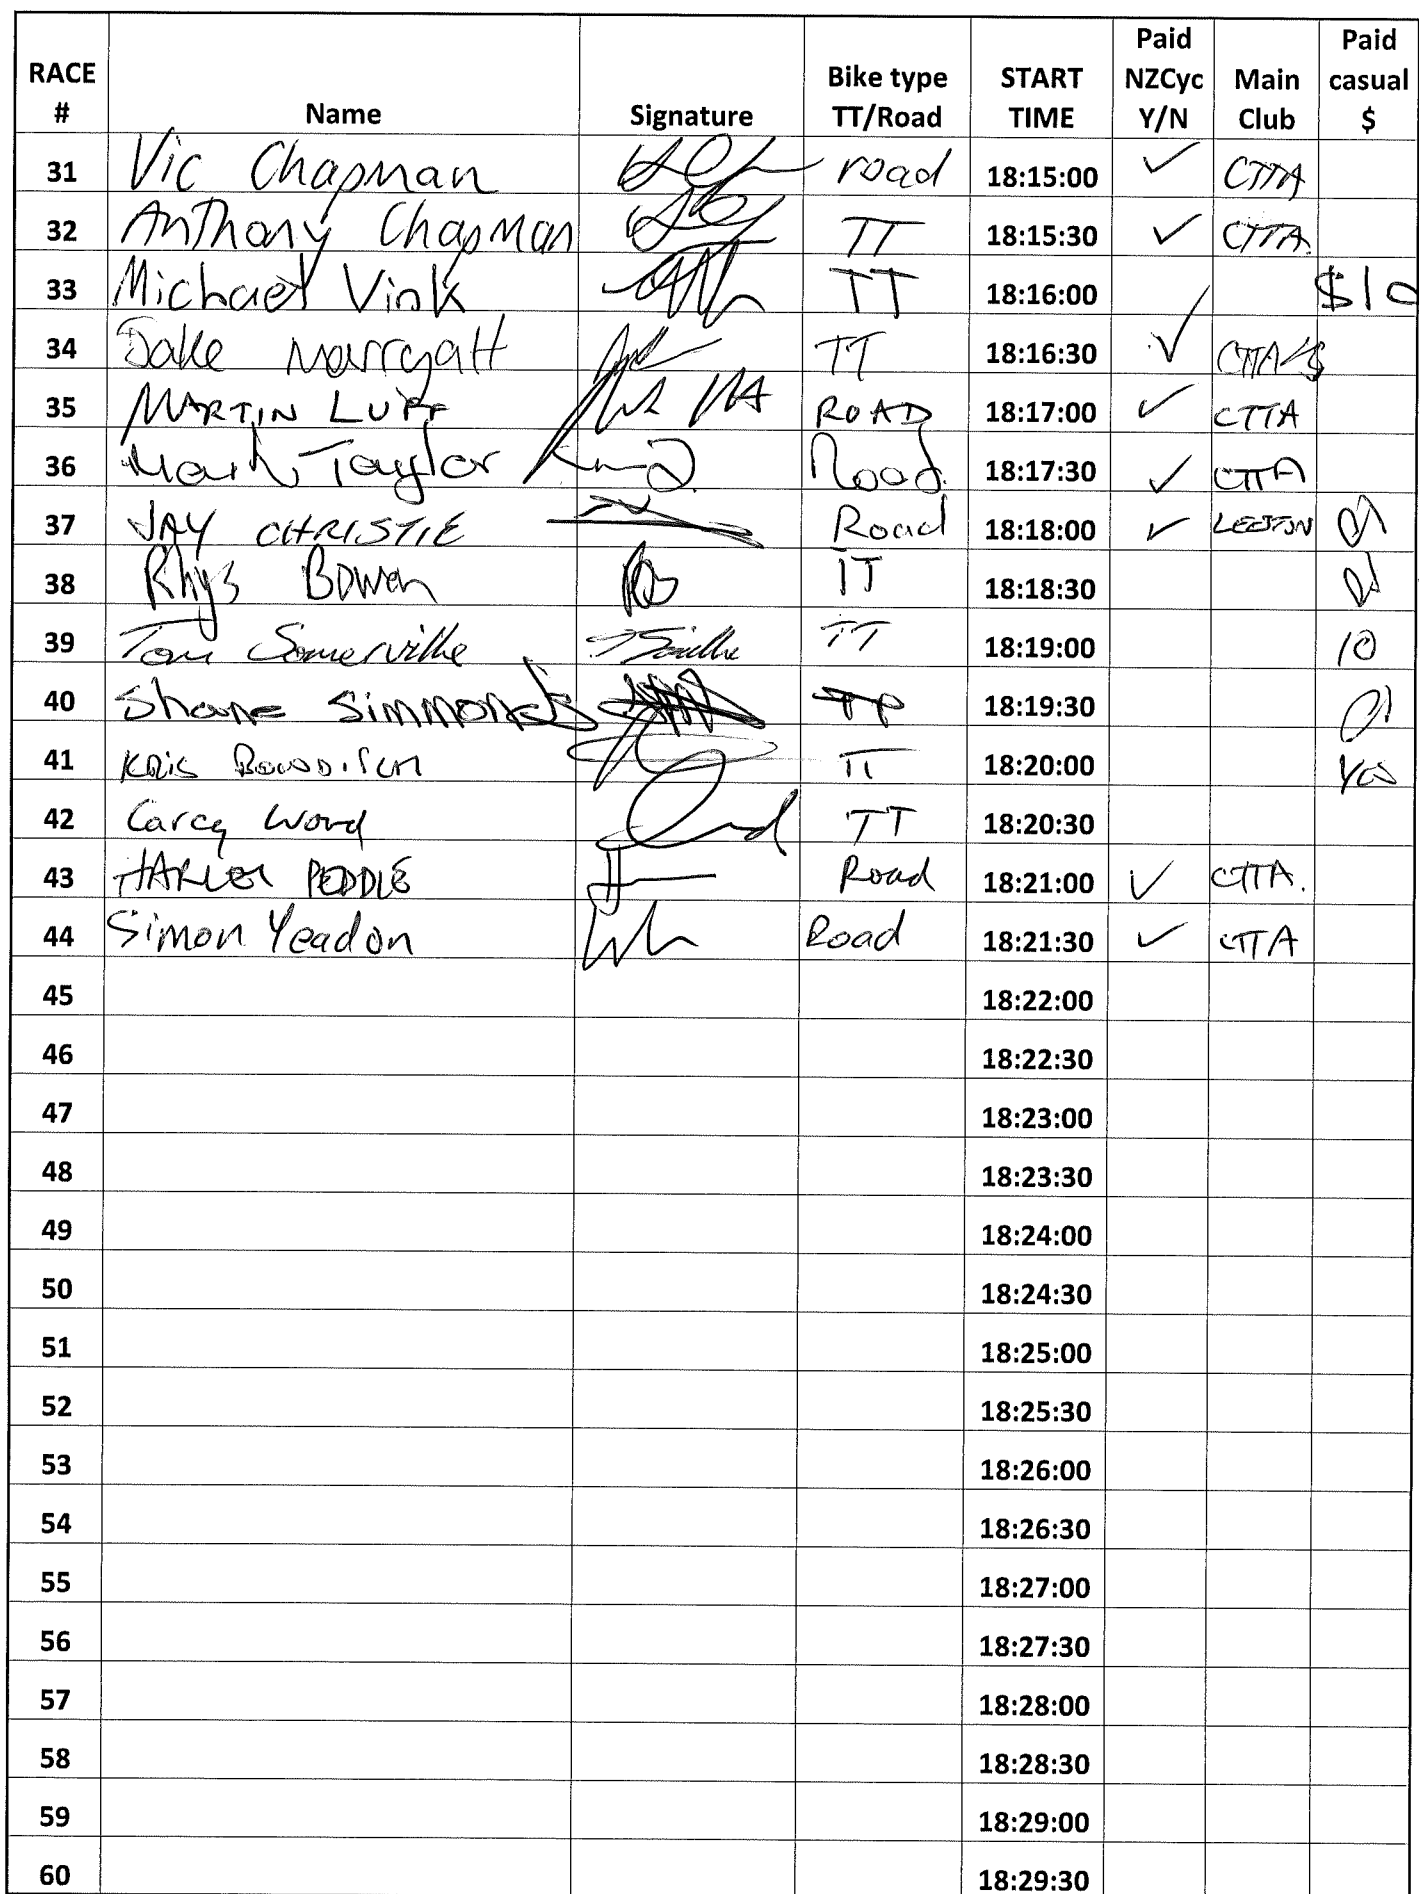 RACE # Name Signature Bike type TT/Road START TIME Paid NZCyc Y/N Main Club Paid casual $
31 Vic Chapman road 18:15:00 ✓ CTTA
32 Anthony Chapman TT 18:15:30 ✓ CTTA.
33 Michael Vink TT 18:16:00 $10
34 Jake Marryatt TT 18:16:30 ✓
35 MARTIN LUFF ROAD 18:17:00 ✓ CTTA
36 Mark Taylor Road 18:17:30 ✓ CTTA
37 JAY CHRISTIE Road 18:18:00 ✓
38 Rhys Bowen TT 18:18:30
39 Tom Somerville TT 18:19:00 10
40 Shane Simmonds 18:19:30
41 KRIS TT 18:20:00 YES
42 TT 18:20:30
43 PEDDLE Road 18:21:00 ✓ CTTA.
44 Simon Yeadon Road 18:21:30 ✓ CTTA
45 18:22:00
46 18:22:30
47 18:23:00
48 18:23:30
49 18:24:00
50 18:24:30
51 18:25:00
52 18:25:30
53 18:26:00
54 18:26:30
55 18:27:00
56 18:27:30
57 18:28:00
58 18:28:30
59 18:29:00
60 18:29:30